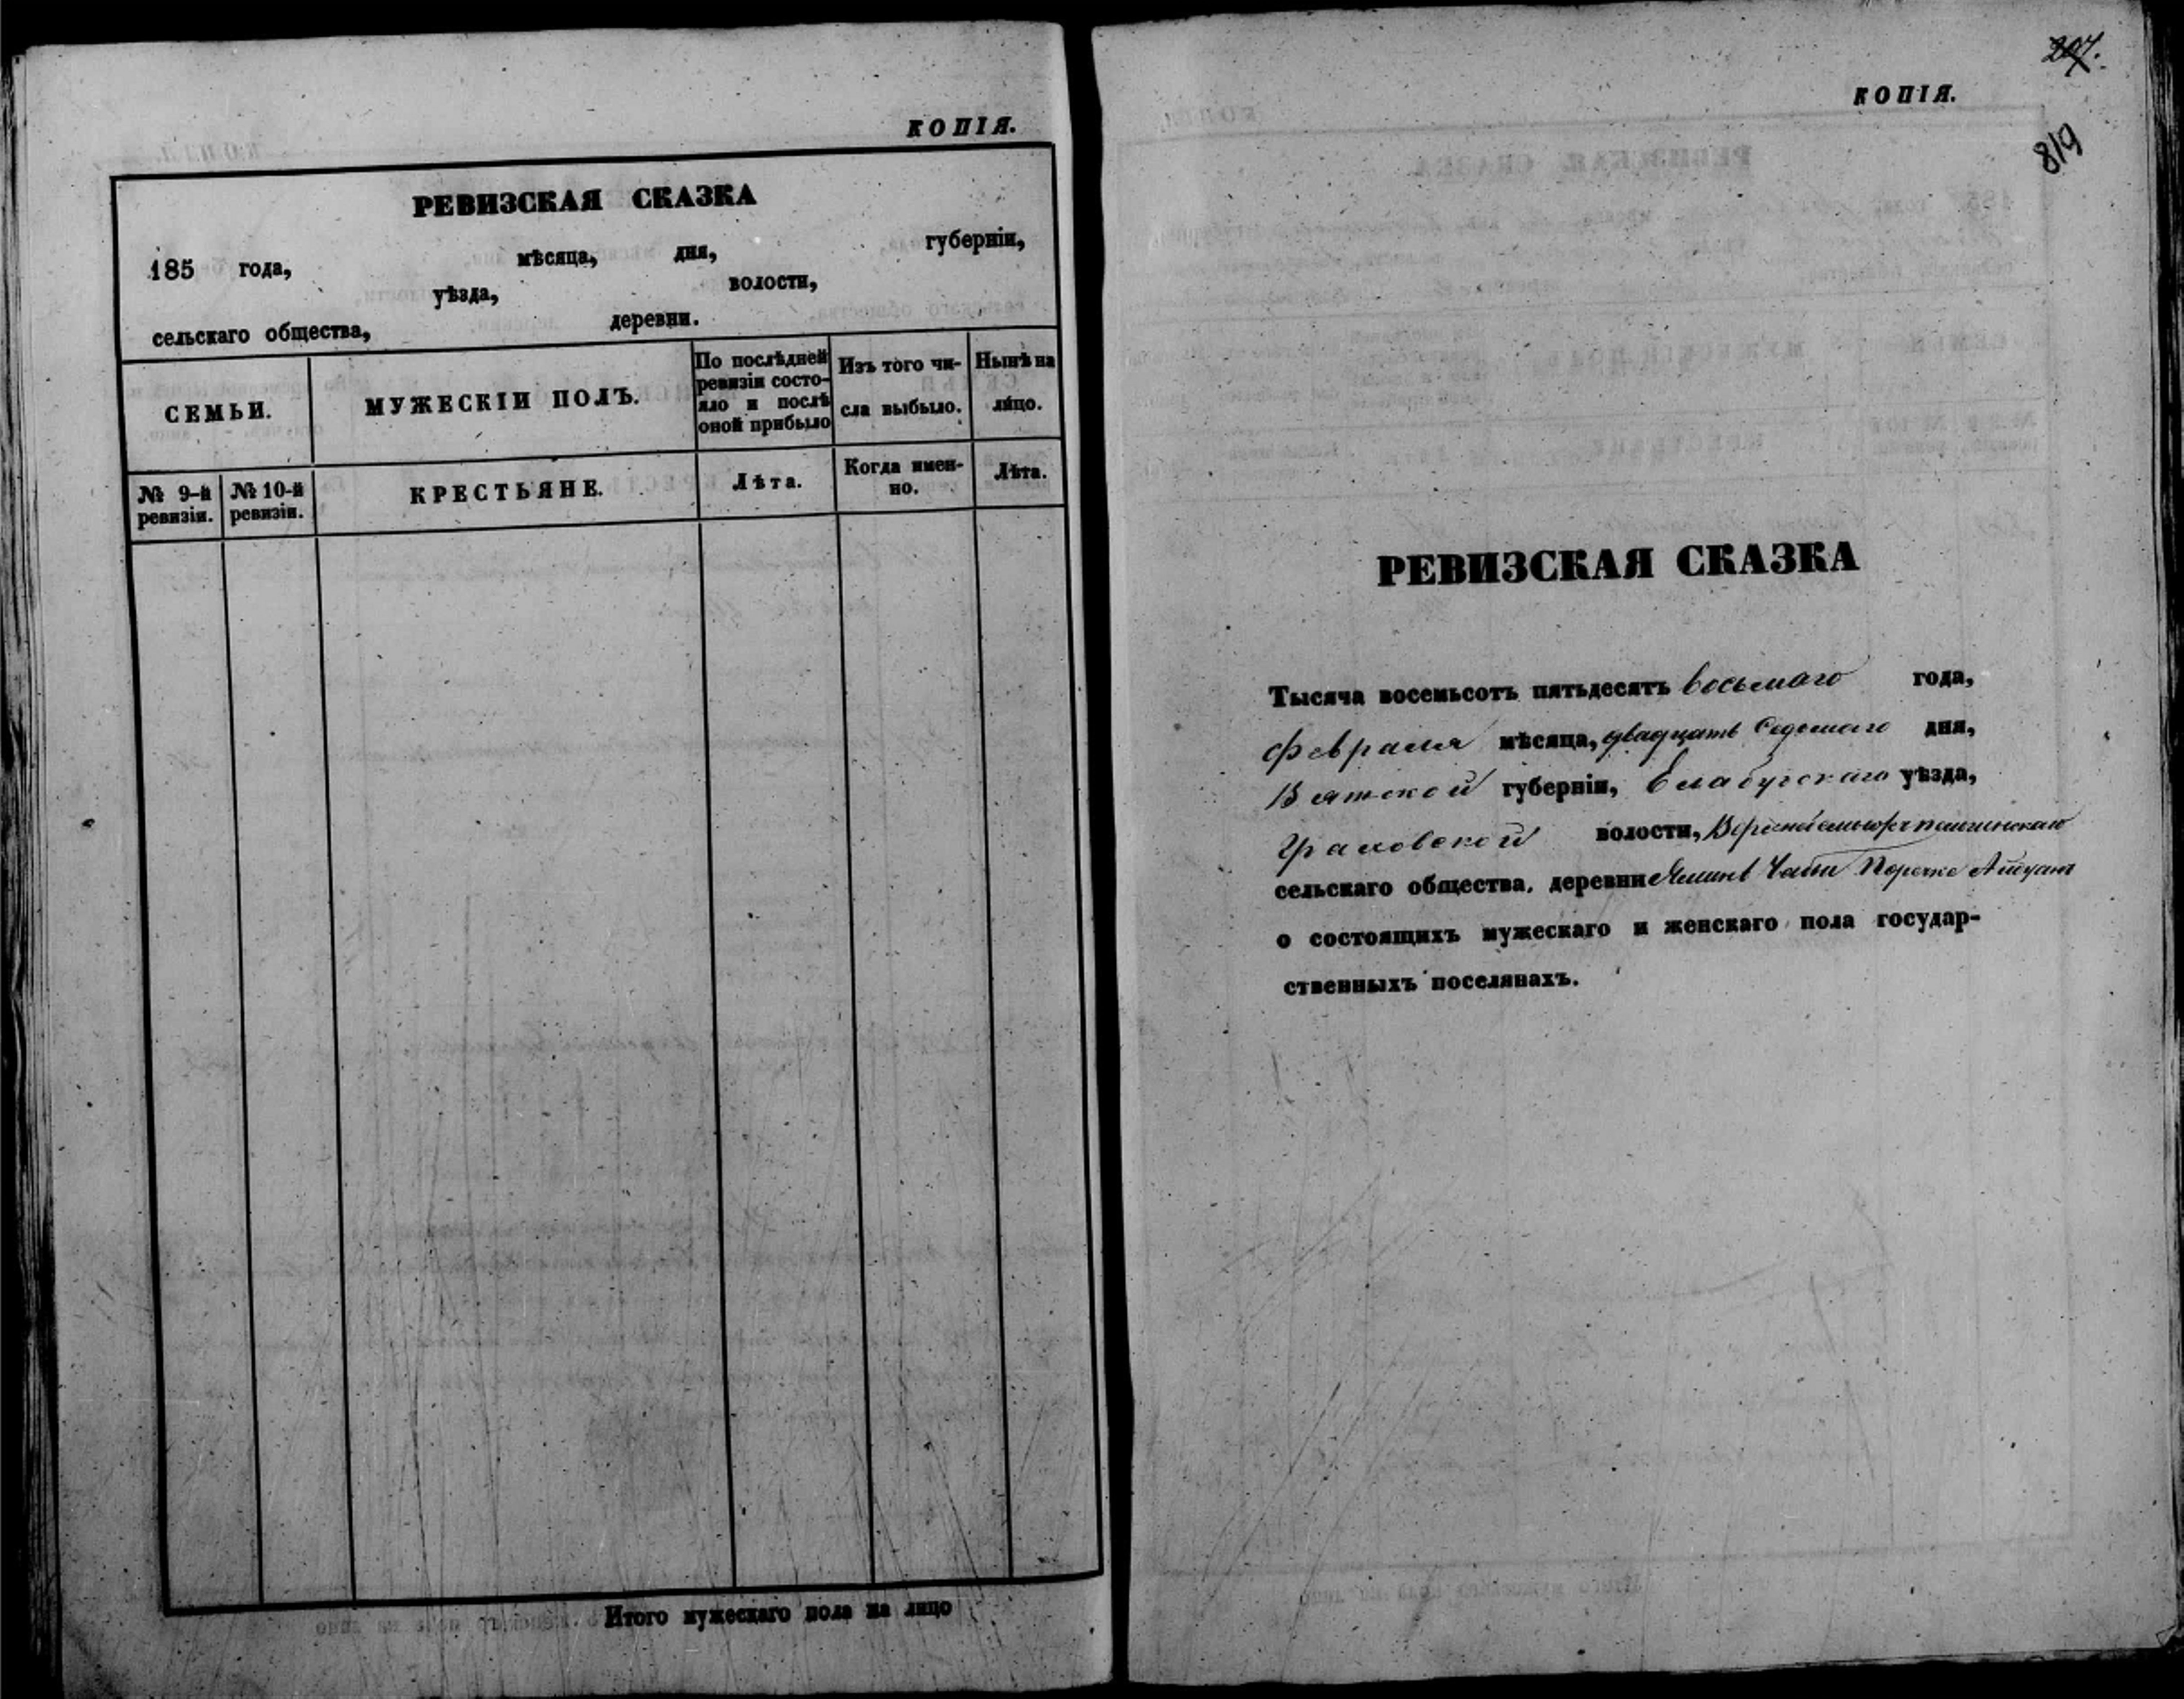 КОПІЯ.
РЕВИЗСКАЯ СКАЗКА
185 года, мѣсяца, дня, губерніи,
уѣзда, волости,
сельскаго общества, деревни.
СЕМЬИ.
МУЖЕСКІЙ ПОЛЪ.
По послѣдней
ревизіи состо-
яло и послѣ
оной прибыло
Изъ того чи-
сла выбыло.
Нынѣ на
лицо.
№ 9-й
ревизіи.
№ 10-й
ревизіи.
КРЕСТЬЯНЕ.
Лѣта.
Когда имен-
но.
Лѣта.
Итого мужескаго пола на лицо
207.
КОПІЯ.
819
РЕВИЗСКАЯ СКАЗКА
Тысяча восемьсотъ пятьдесятъ восьмаго года,
Февраля мѣсяца, двадцать седьмаго дня,
Вятской губерніи, Елабугскаго уѣзда,
Граховской волости,
сельскаго общества, деревни
о состоящихъ мужескаго и женскаго пола государ-
ственныхъ поселянахъ.